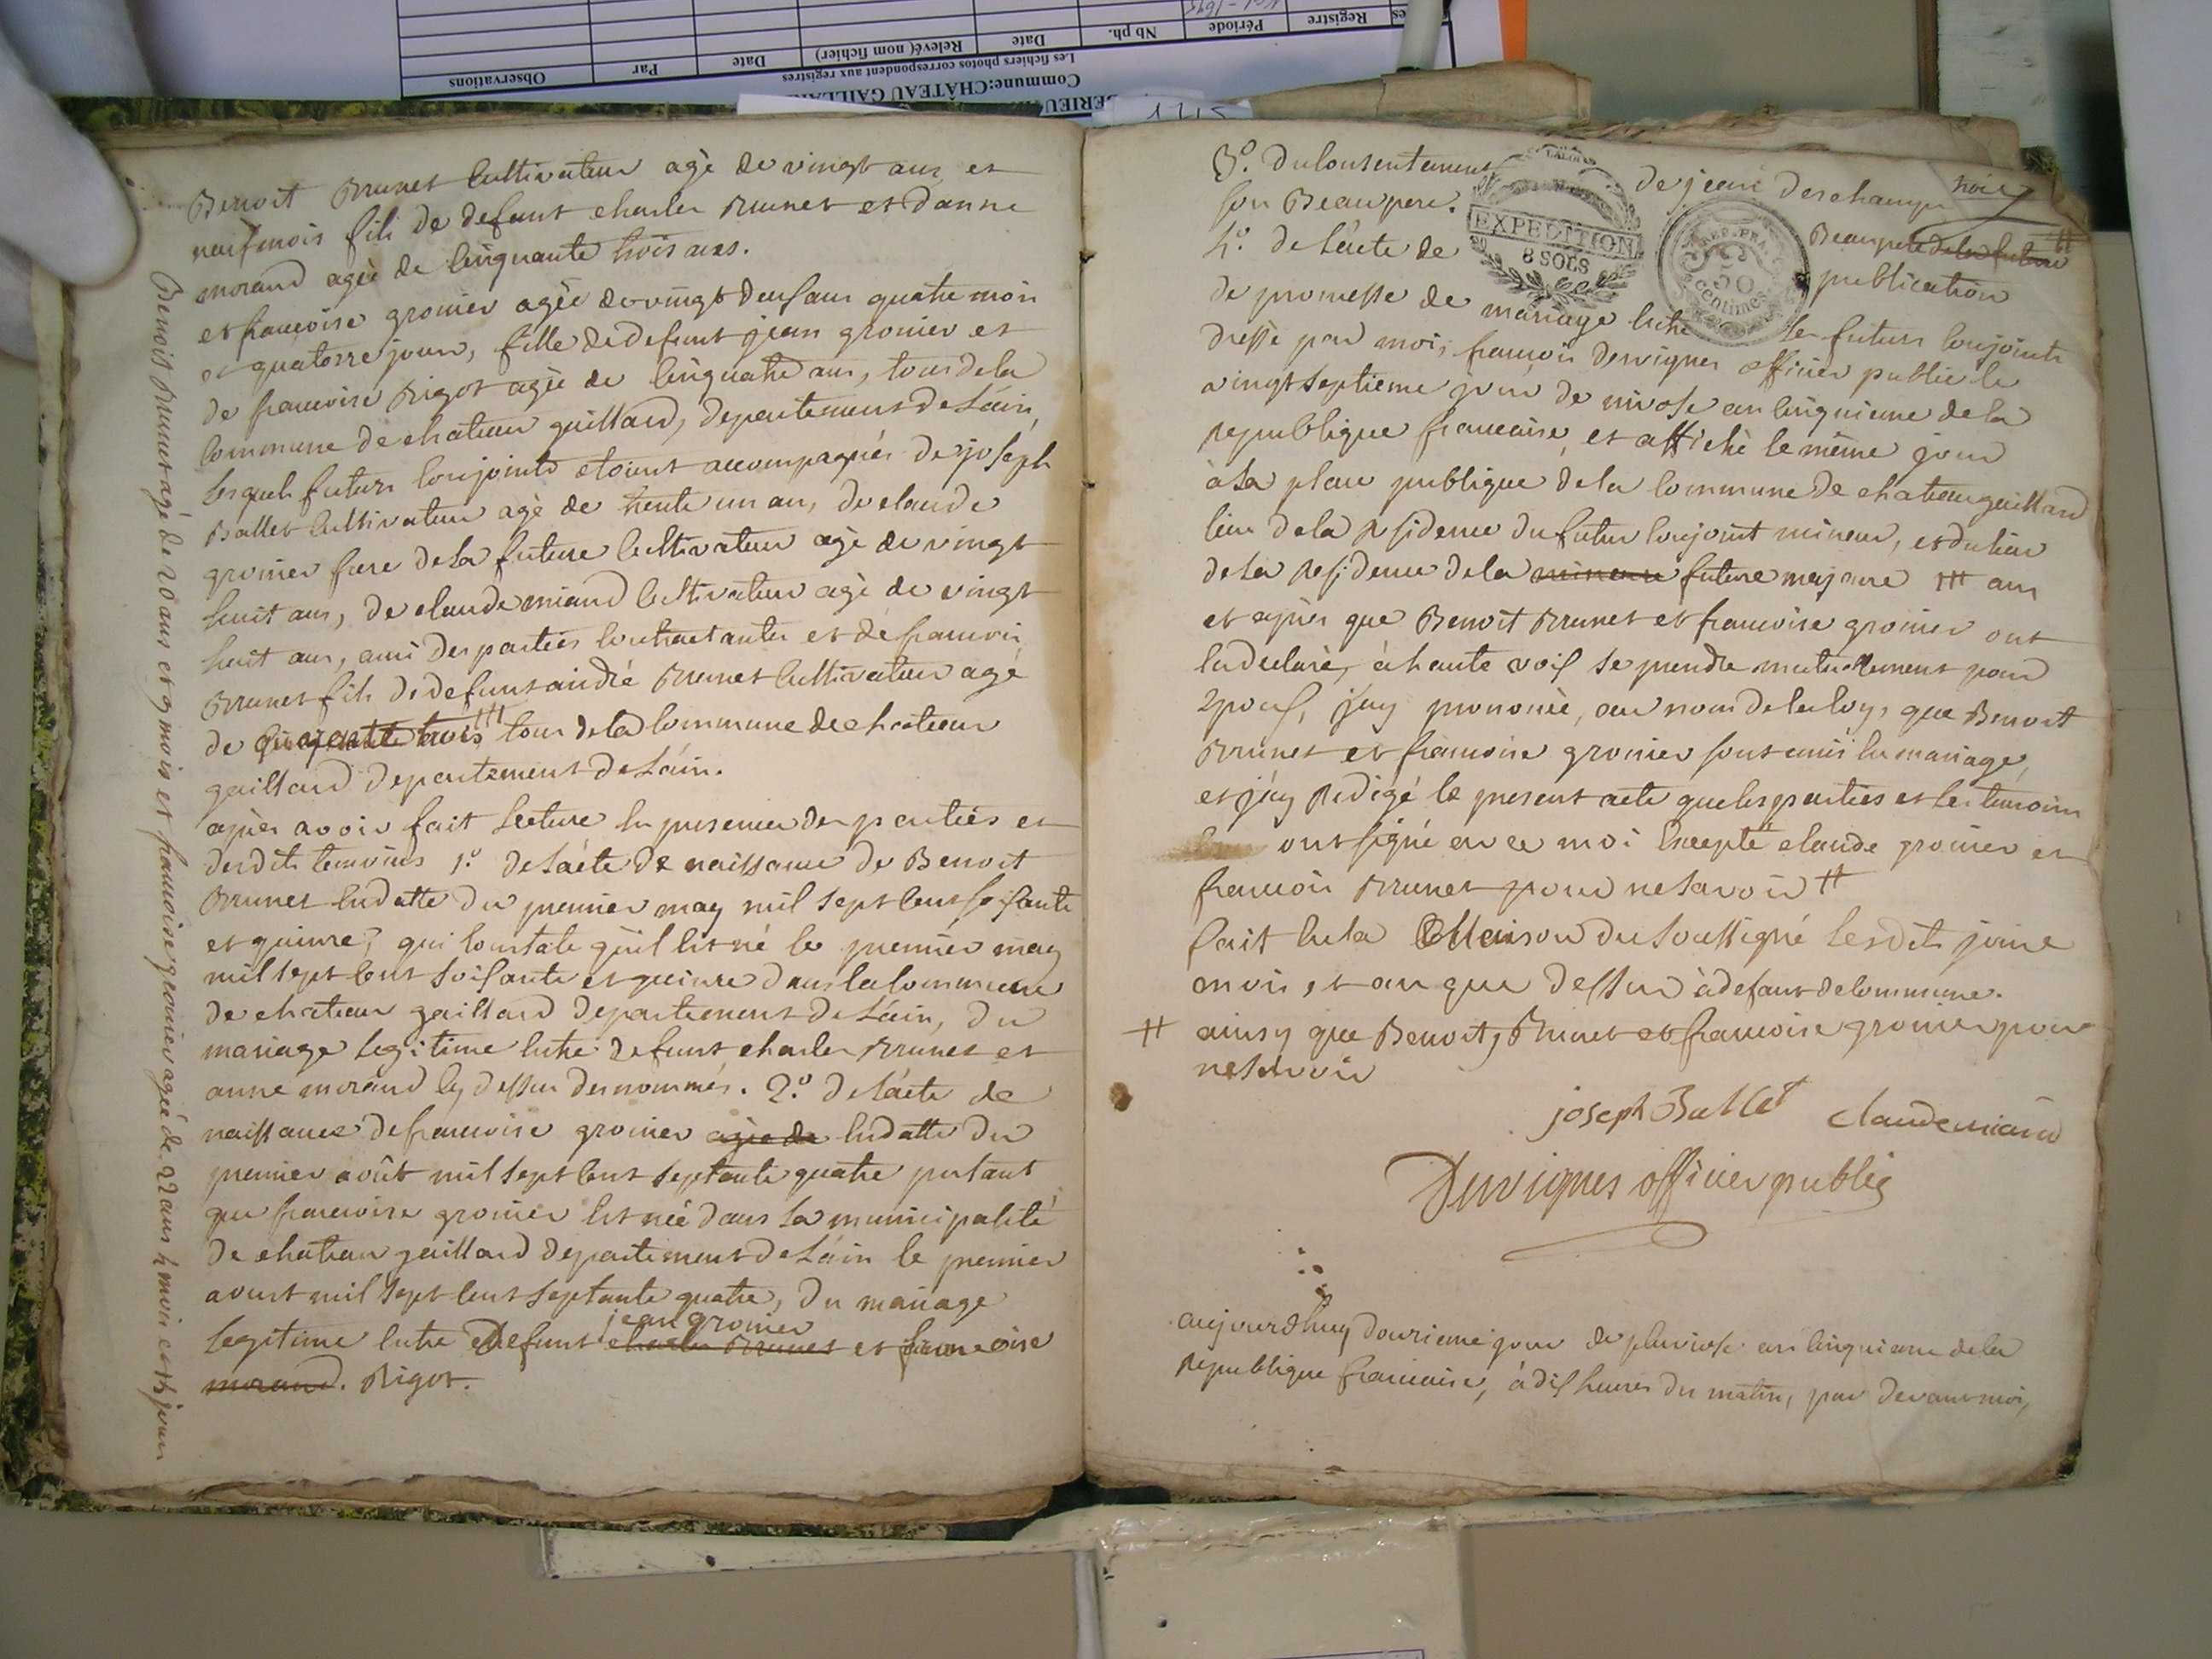 Observations
Par
Date
Relevé( nom fichier)
Date
Nb ph.
Période
Registre
Les fichiers photos correspondent aux registres
Commune:CHÂTEAU GAILLA
BERIEU
Benoit Brunet Cultivateur agè de vingt ans et
neuf mois fils de defunt charles Brunet et d'anne
morand agée de Cinquante trois ans.
et francoise gronier agée de vingt deux ans quatre mois
et quatorze jours, fille de defunt jean gronier et
de francoise Rigot agée de Cinquante ans, tous de la
Commune de chateau gaillard, departement de L'áin,
Lesquels futurs Conjoints etoient accompagnés de joseph
Ballet Cultivateur agè de trente un ans, de claude
gronier frere de la future Cultivateur agè de vingt
huit ans, de claude miand Cultivateur agè de vingt
huit ans, amis des parties Contractantes et de francois
Brunet fils de defunt andré Brunet Cultivateur agé
de trois ttt tous de la Commune de chateau
gaillard departement de L'áin.
après avoir fait Lecture En presence des parties et
desdits temoins 1º. de L'ácte de naissance de Benoit
Brunet En datte du premier may mil sept Cent soixante
et quinze, qui Constate qu'il Est né le premier may
mil sept Cent soixante et quinze dans la Commune
de chateau gaillard departement de L'áin, du
mariage Legitime Entre defunt charles Brunet et
anne morand Cy dessus denommés. 2º. de L'ácte de
naissance de francoise gronier agée de En datte du
premier août mil sept Cent septante quatre portant
que francoise gronier Est née dans La municipalité
de chateau gaillard departement de L'áin le premier
aoust mil sept Cent septante quatre, du mariage
jean gronier
Legitime Entre defunt charles Brunet et francoise
morand. Rigot.
Benoit Brunet agé de 20 ans et 9 mois et francoise gronier agée de 22 ans 4 mois et 14 jours
3º. du Consentement de jean deschamps
son Beaupere. Beaupere de la future tt
EXPEDITION
8 SOLS
REP. FRA.
50
centimes
4º. de L'ácte de publication
de promesse de mariage Entre Les futurs Conjoints
dressé par moi, francois Desvignes officier public le
vingt septieme jour de nivose an Cinquieme de la
Republique francaise, et affiché le même jour
à La place publique de la Commune de chateau gaillard
lieu de la Residence du futur Conjoint mineur, et du lieu
de La Residence de la mineure future majeure ttt ans
et après que Benoit Brunet et francoise gronier ont
Eu declaré, à haute voix se prendre mutuellement pour
Epoux, j'ay prononcé, au nom de la loy, que Benoit
Brunet et francoise gronier sont unis En mariage,
et j'ay Redigé le present acte que les parties et les temoins
ont signé avec moi Excepté claude gronier et
francois Brunet pour ne savoir tt
fait En la Maison du soussigné Lesdits jour
mois, et an que dessus à defaut de Commune.
tt ainsy que Benoit, Brunet et francoise gronier pour
ne savoir
joseph Ballet claude miand
Desvignes officier public
aujourdhuy douzieme jour de pluviose an Cinquieme de la
Republique francaise, à dix heures du matin, par devant moi,